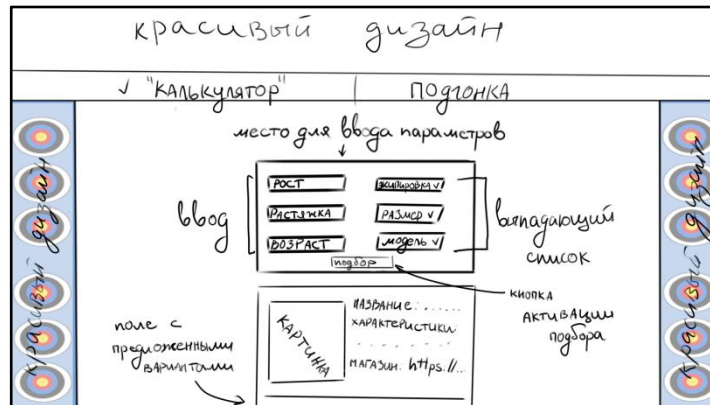 красивый дизайн
✓ "КАЛЬКУЛЯТОР"
ПОДГОНКА
место для ввода параметров
РОСТ
ЭКИПИРОВКА ✓
РАСТЯЖКА
РАЗМЕР ✓
ВОЗРАСТ
МОДЕЛЬ ✓
подбор
ввод
выпадающий
список
кнопка
АКТИВАЦИИ
подбора
поле с
предложенными
вариантами
КАРТИНКА
НАЗВАНИЕ: ......
ХАРАКТЕРИСТИКИ:
. . . . . . . .
МАГАЗИН: https://...
красивый дизайн
красивый дизайн